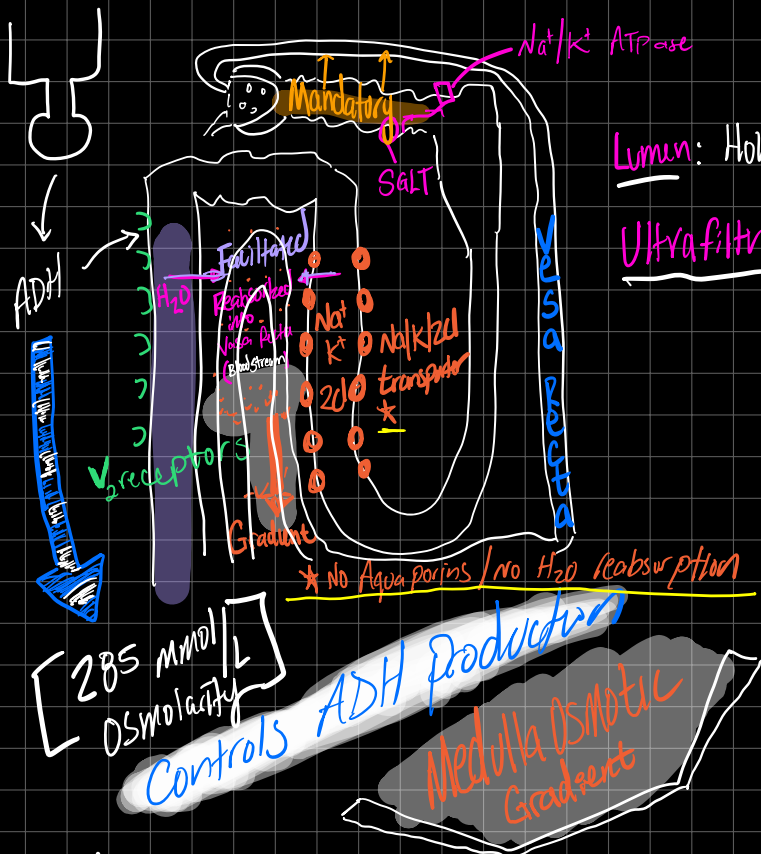 Na⁺/K⁺ ATPase
Mandatory
SGLT
Lumen: Ho
Ultrafiltr
ADH
H₂O
Faciltated
Reabsorbed
into
Vasa Recta
(Bloodstream)
Na⁺
K⁺
2cl
Na/K/2cl
transportor
*
Vesa Recta
V₂receptors
Gradient
* No Aquaporins / no H₂O reabsorption
[285 mmol/L
osmolarity]
Controls ADH production
Medulla Osmotic
Gradient